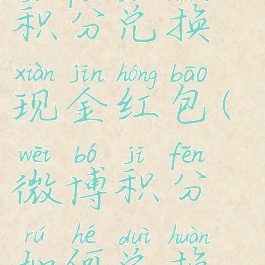 积分兑换
xiàn jīn hóng bāo
现金红包(
wēi bó jī fēn
微博积分
rú hé duì huàn
如何兑换